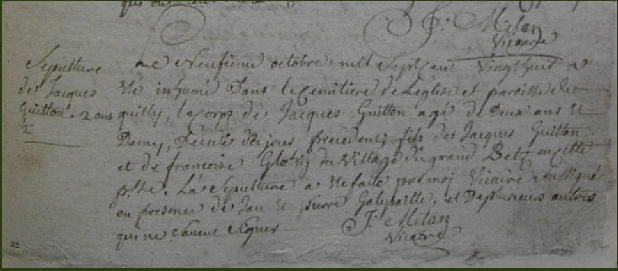 F: Milan
Vicaire
Sepulture
de Jacques
Guitton 2 ans
Le Neufieme octobre mil Sept cent vingt huit a
eté inhumé Dans le cimitiere de L'eglise et paroisse de
quilly, le corps de Jacques Guitton agé de Deux ans et
Demy, Decedé precedent, fils de Jacques Guitton
et de francoise du village du grand Betz en cette
p.sse. La Sepulture a ete faite par moy vicaire soussigné
en presence de Jan et pierre et De plusieurs autres
qui ne scavent signer
F: Milan
Vicaire